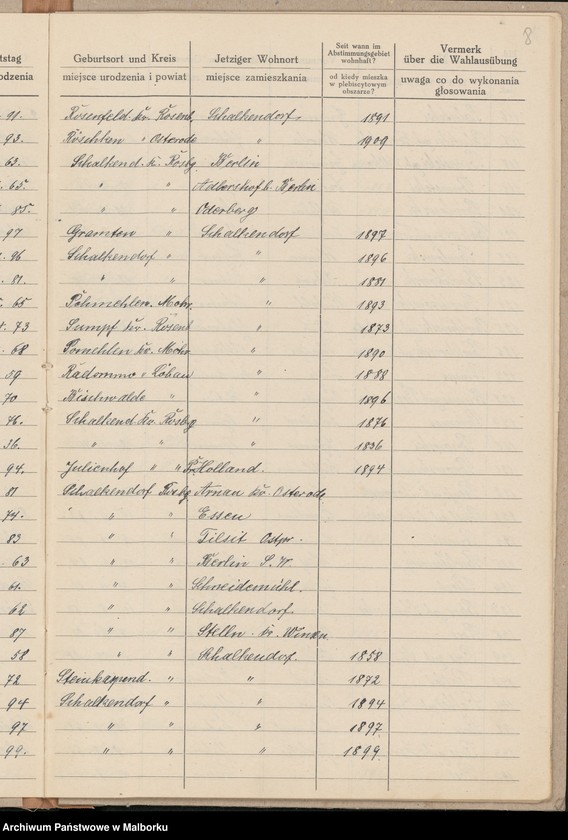 8
tstag
odzenia
Geburtsort und Kreis
miejsce urodzenia i powiat
Jetziger Wohnort
miejsce zamieszkania
Seit wann im
Abstimmungsgebiet
wohnhaft?
od kiedy mieszka
w plebiscytowym
obszarze?
Vermerk
über die Wahlausübung
uwaga co do wykonania
głosowania
91. Rosenfeld Kr. Rosenb. Schalkendorf 1891
93. Röschken " Osterode " 1909
63. Schalkend. Kr. Rosbg Berlin
65. " " Adlershof b. Berlin
85. " " Oderberg
97 Gramten " Schalkendorf 1897
96 Schalkendorf " " 1896
81. " " " 1881
65 Mohr. " 1893
73 Sumpf Kr. Rosenb " 1873
68 Kr. Mohr. " 1890
59 Radomno " Löbau " 1888
70 Bischwalde " " 1896
76. Schalkend. Kr. Rosbg " 1876
36. " " " 1836
94. Julienhof " " Pr. Holland. 1894
81 Schalkendorf Rosbg Arnau Kr. Osterode
74. " " " Essen
83 " " Tilsit Ostpr.
63 " " Berlin S.W.
61. " " Schneidemühl.
62 " " Schalkendorf.
87 " " Kr. Winsen
58 " " Schalkendorf. 1858
72 " " 1872
94 Schalkendorf " " 1894
97 " " " 1897
99. " " " 1899.
Archiwum Państwowe w Malborku